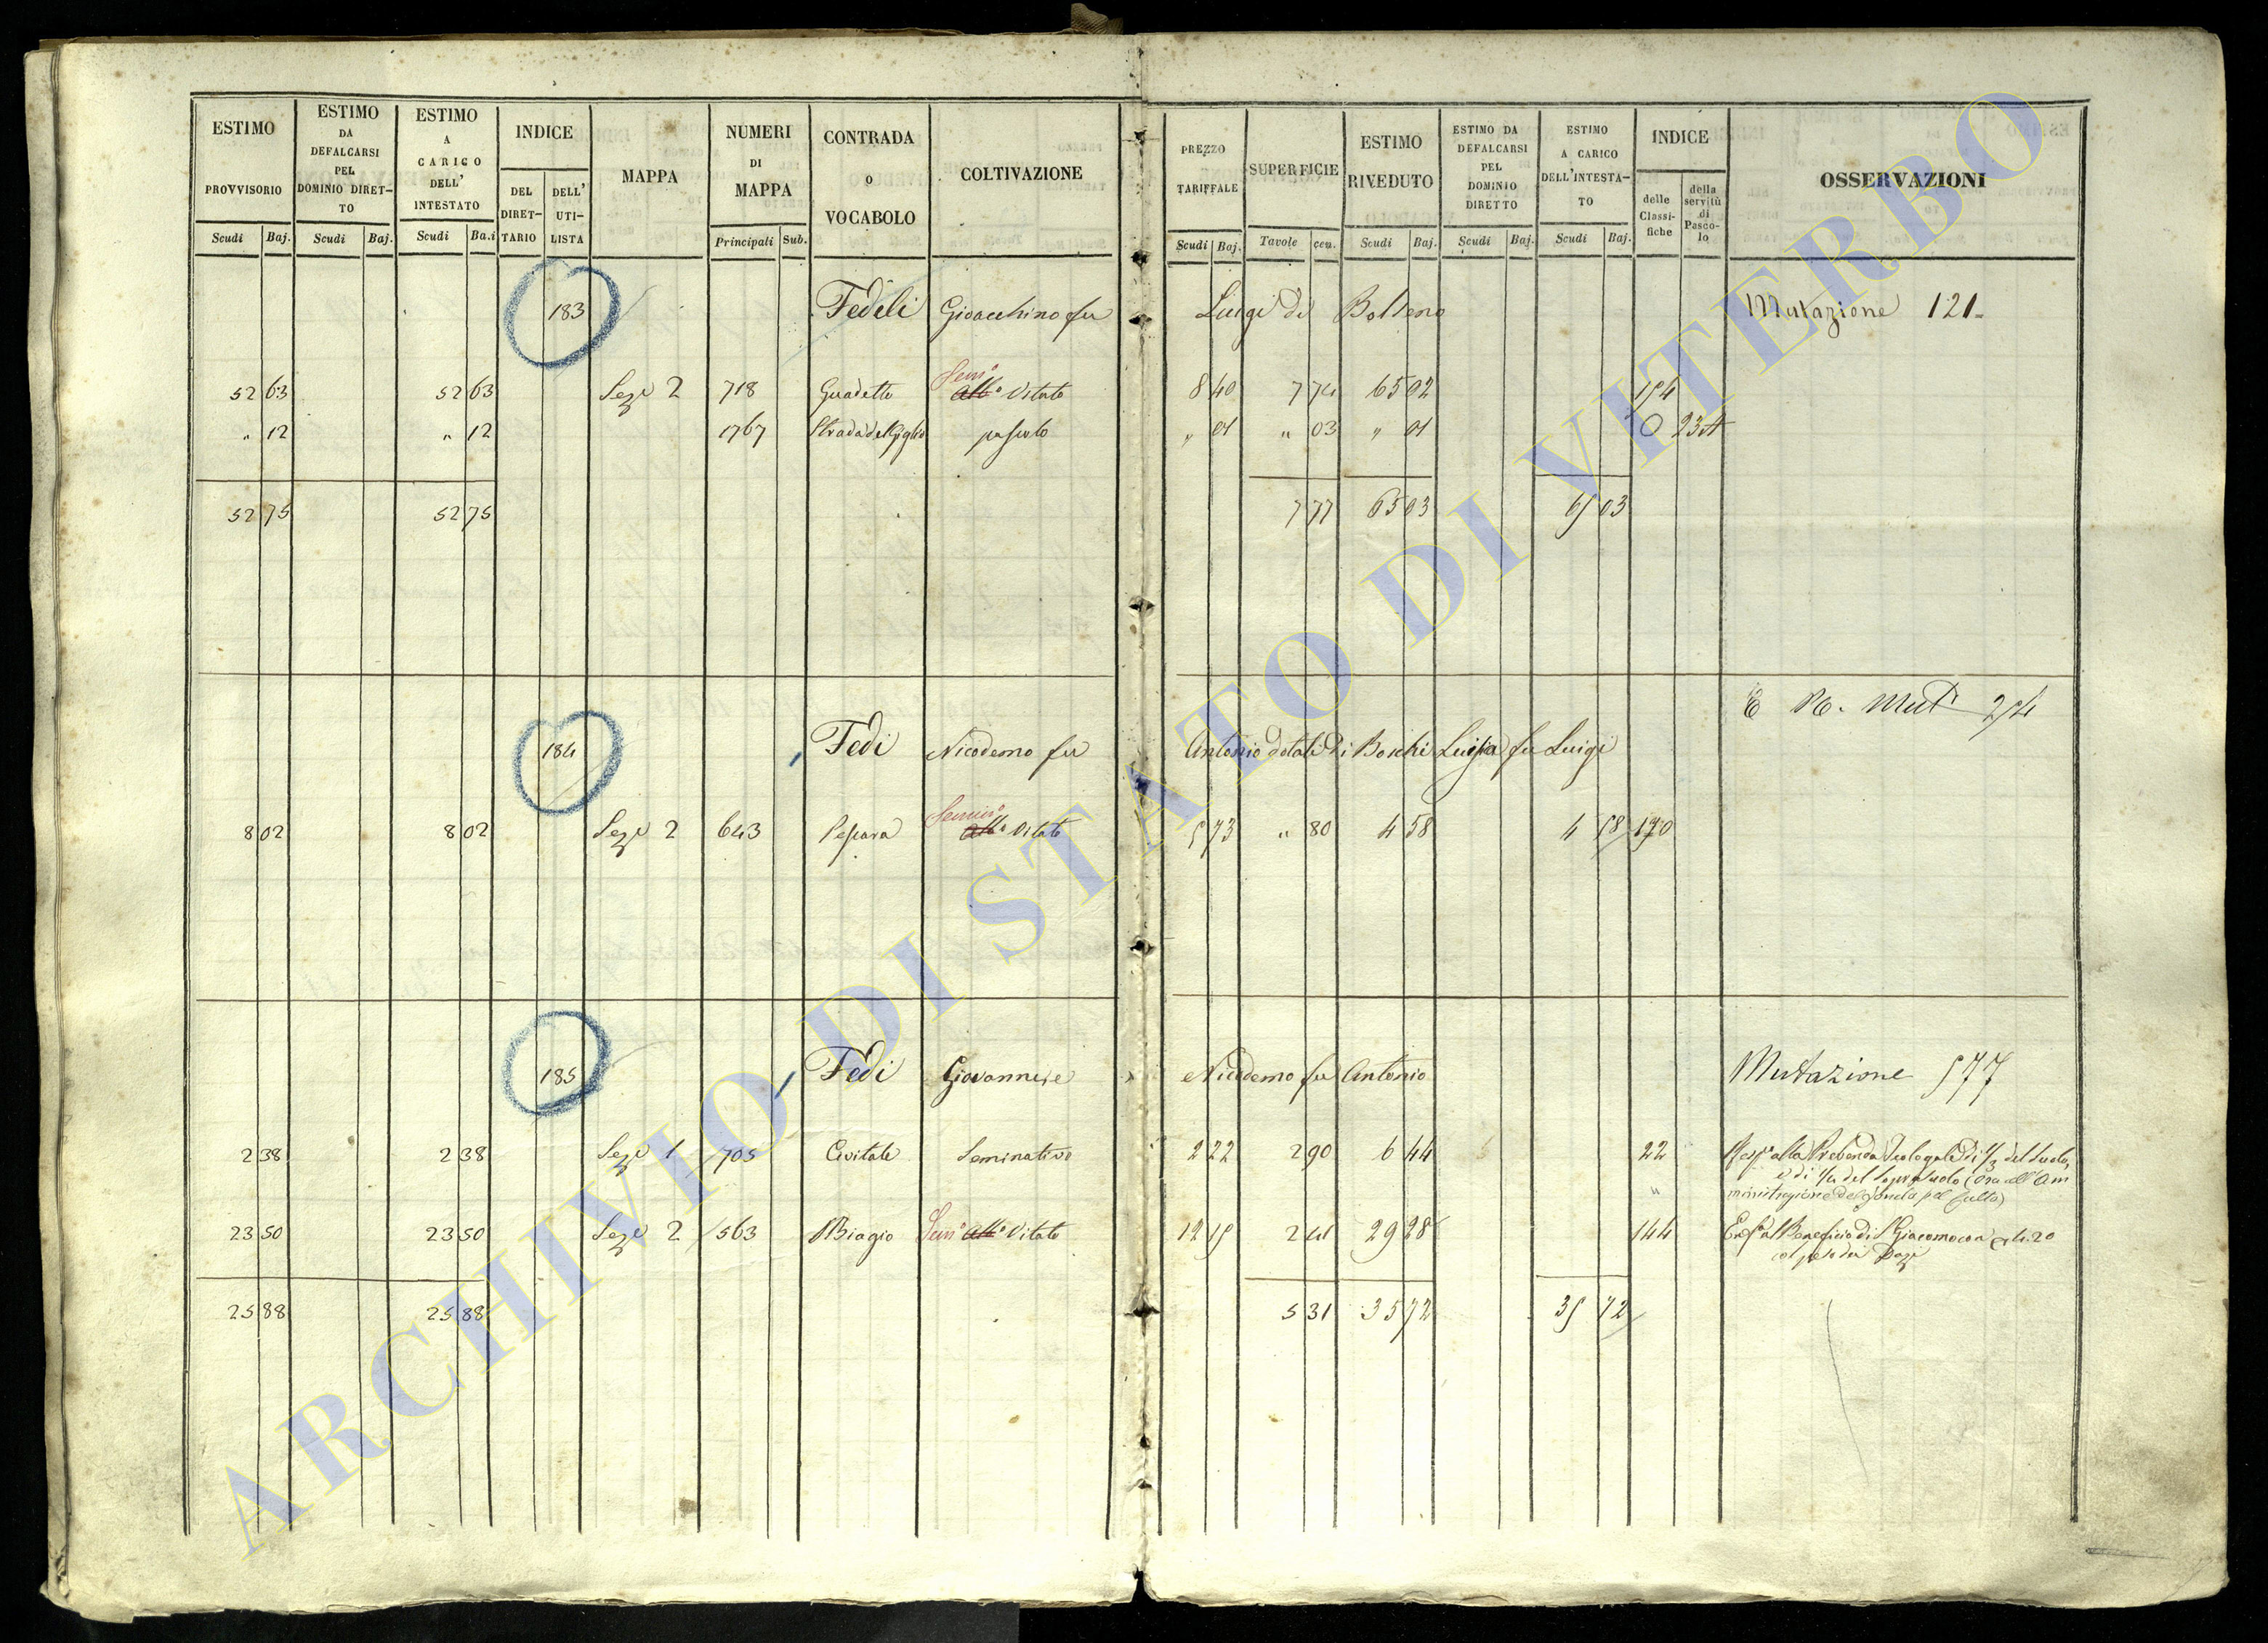 ESTIMO PROVVISORIO Scudi Baj.
ESTIMO DA DEFALCARSI PEL DOMINIO DIRETTO Scudi Baj.
ESTIMO A CARICO DELL' INTESTATO Scudi Ba.i
INDICE DEL DIRETTARIO DELL' UTILISTA
MAPPA
NUMERI DI MAPPA Principali Sub.
CONTRADA O VOCABOLO
COLTIVAZIONE
PREZZO TARIFFALE Scudi Baj.
SUPERFICIE Tavole cen.
ESTIMO RIVEDUTO Scudi Baj.
ESTIMO DA DEFALCARSI PEL DOMINIO DIRETTO Scudi Baj.
ESTIMO A CARICO DELL'INTESTATO Scudi Baj.
INDICE delle Classifiche della servitù di Pascolo
OSSERVAZIONI
183 Fedeli Gioacchino fu Luigi di Bolseno Mutazione 121
52 63 52 63 Sez.e 2 718 Guadetto Sem.o All.o Vitato 8 40 7 74 65 02 154
" 12 " 12 1767 Strada del Giglio pascolo " 01 " 03 " 01 0 234
52 75 52 75 7 77 65 03 65 03
E N. Mut. 254
184 Fedi Nicodemo fu Antonio dotale di Boschi Luisa fu Luigi
8 02 8 02 Sez.e 2 643 Pescara Semin.o All.o Vitato 5 73 " 80 4 58 4 58 170
185 Fedi Giovannese Nicodemo fu Antonio Mutazione 577
2 38 2 38 Sez.e 1 705 Civitale Seminativo 2 22 2 90 6 44 22 Resp.a alla Prebenda Teologale di 1/3 del suolo,
e di 1/4 del soprasuolo (ora all'Am
ministrazione del fondo pel culto)
23 50 23 50 Sez.e 2 563 Biagio Sem.o All.o Vitato 12 15 2 41 29 28 144 Enf.a al Beneficio di S Giacomo con 20
col peso dei Dazi
25 88 25 88 5 31 35 72 35 72
ARCHIVIO DI STATO DI VITERBO